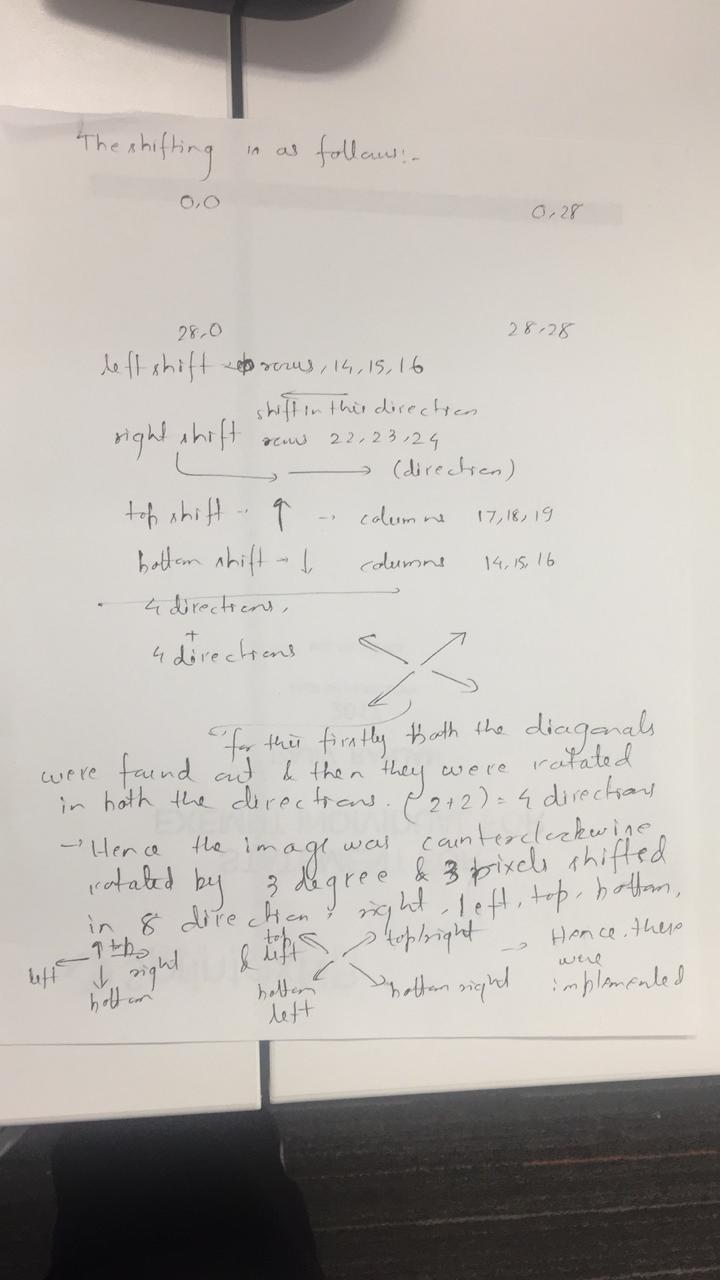 The shifting is as follows:-
0,0 0,28
28,0 28,28
left shift rows, 14,15,16
shift in this direction
right shift rows 22,23,24
(direction)
top shift - ↑ - columns 17,18,19
bottom shift - ↓ columns 14,15,16
4 directions,
+
4 directions
for this firstly both the diagonals
were found out & then they were rotated
in both the directions. (2+2) = 4 directions
→ Hence the image was counterclockwise
rotated by 3 degree & 3 pixels shifted
in 8 direction: right, left, top, bottom,
left ↑ top right bottom & top left top/right bottom left bottom right → Hence, these
were
implemented